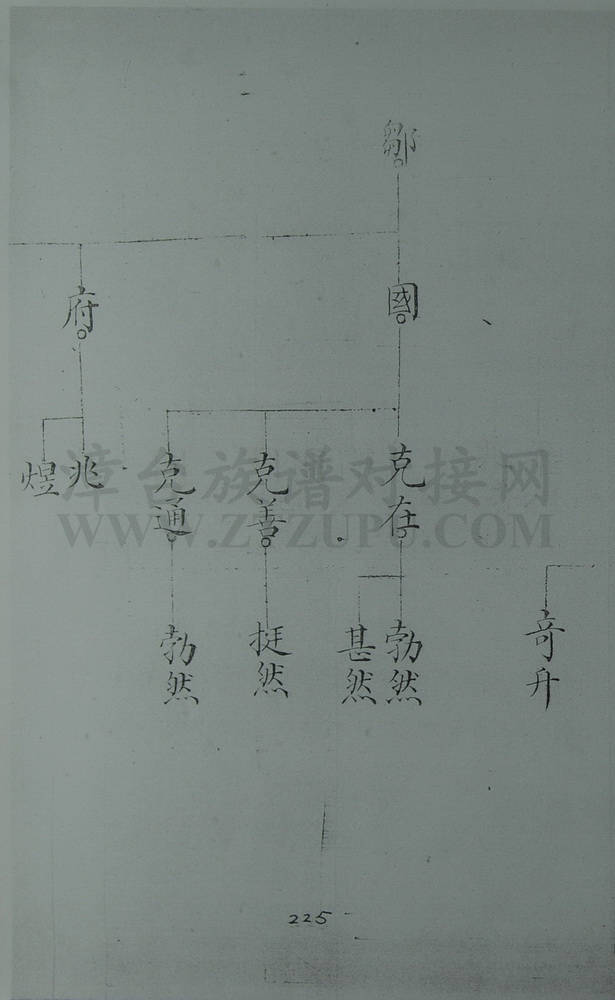 鄒
國
府
克在
克善
克通
兆
煜
奇升
勃然
甚然
挺然
勃然
漳台族谱对接网
WWW.ZTZUPU.COM
225